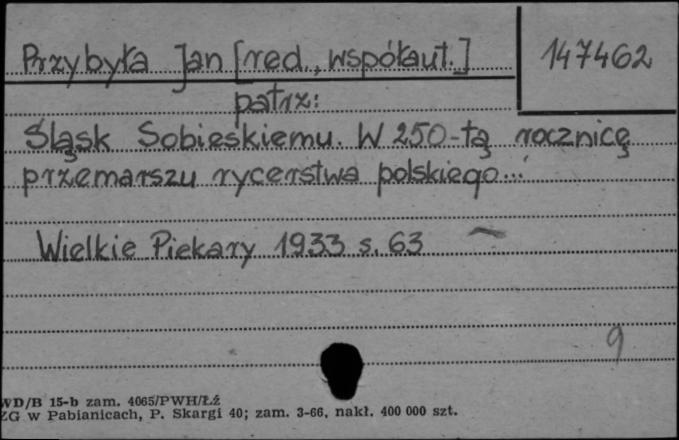 Przybyła Jan [red., współaut.]
147462
patrz:
Śląsk Sobieskiemu. W 250-tą rocznicę
przemarszu rycerstwa polskiego...
Wielkie Piekary 1933 s. 63
9
WD/B 15-b zam. 4065/PWH/Łż
ZG w Pabianicach, P. Skargi 40; zam. 3-66, nakł. 400 000 szt.